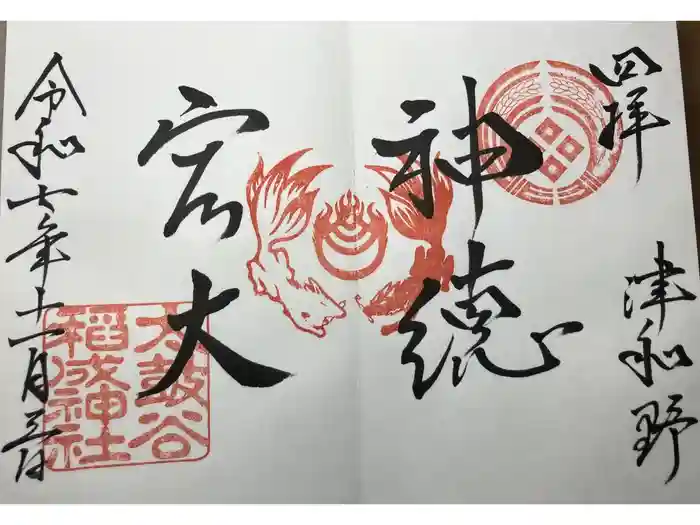 四拝
津和野
神徳
宏大
令和七年十一月
太鼓谷
稲成神社